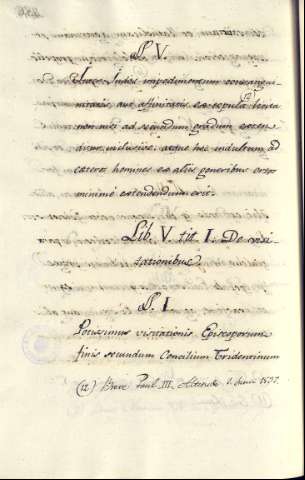 §. V.
Inter Indos impedimentum consangui-
nitatis, aut affinitatis ex copula licita
non nisi ad secundum gradum exten-
ditur inclusive: atque hoc indultum ad
ceteros homines ex aliis generibus ortos
minime extendendum erit.
Lib. V. tit. I. De visi-
tationibus.
§. I
Potissimus visitationis Episcoporum
finis secundum Concilium Tridentinum
(12) Breve Paul. III. Altitudo 1. Junii 1537.